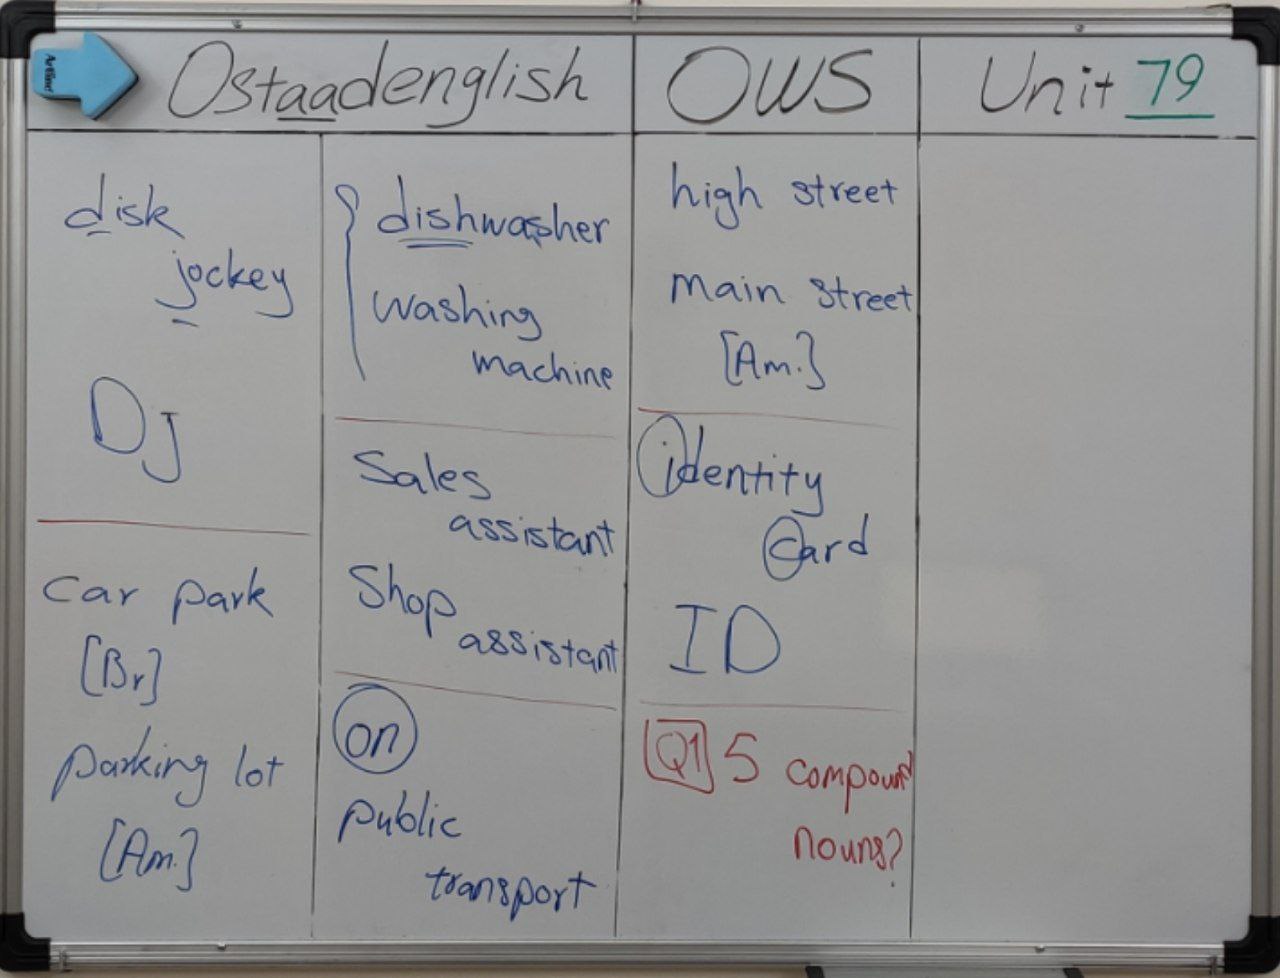 Ostaadenglish OWS Unit 79
disk
jockey
DJ
car park
[Br]
parking lot
[Am.]
dishwasher
washing
machine
Sales
assistant
Shop
assistant
on
public
transport
high street
main street
[Am.]
identity
card
ID
Q1 5 compound
nouns?